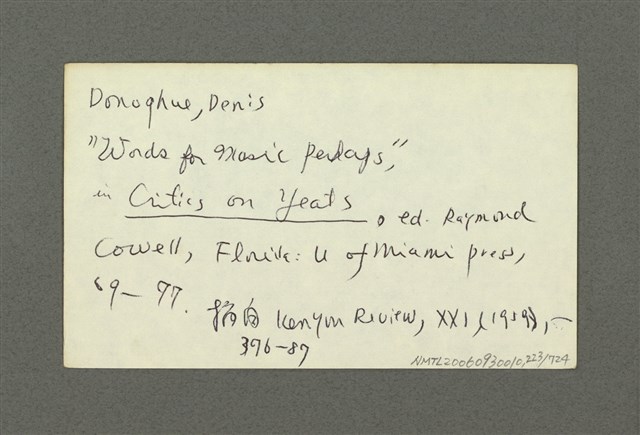 Donoghue, Denis
"Words for Music Perhaps,"
in Critics on Yeats, ed. Raymond
Cowell, Florida: U of Miami press,
69–77.
摘自 Kenyon Review, XXI, (1959),
376–87
NMTL20060930010,223/724